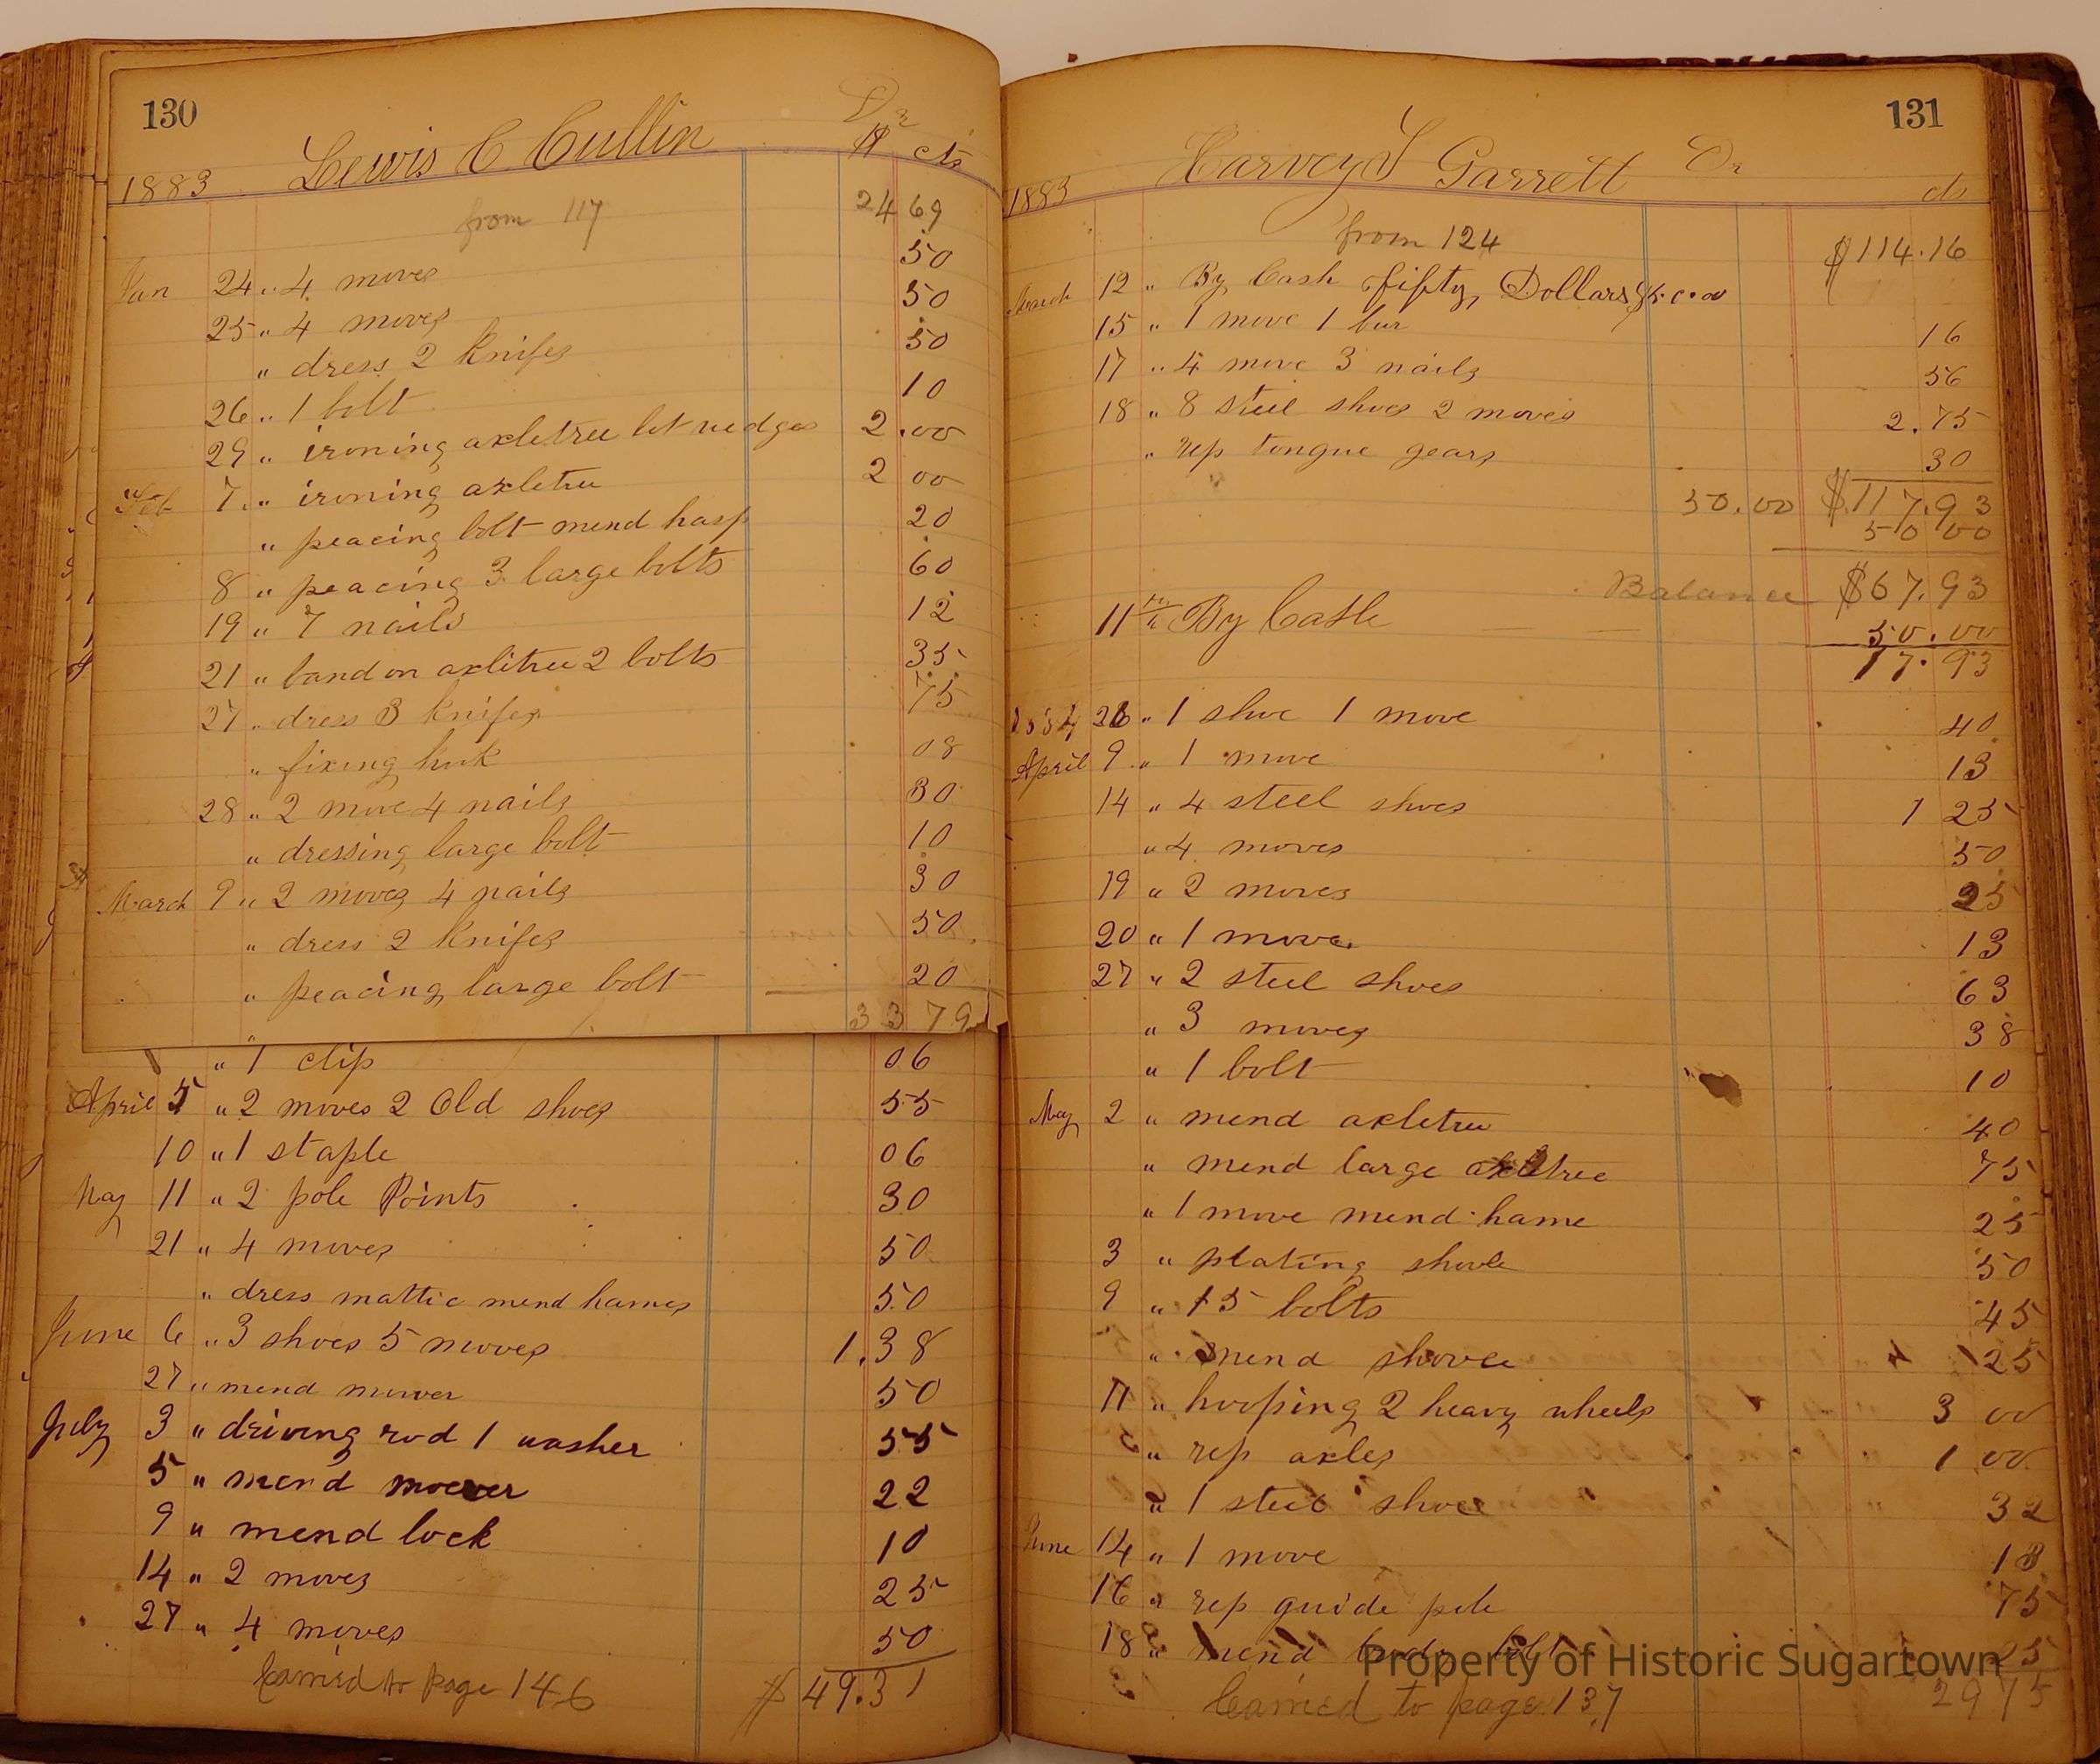 130
Lewis C Cullin Dr
1883 $ cts
from 117 24 69
Jan 24 " 4 moves 50
25 " 4 moves 50
" dress 2 knifes 50
26 " 1 bolt 10
29 " ironing axletree let wedges 2.00
Feb 7 " ironing axletree 2 00
" peacing bolt mend hasp 20
8 " peacing 3 large bolts 60
19 " 7 nails 12
21 " band on axlitree 2 bolts 35
27 " dress 3 knifes 75
" fixing hook 08
28 " 2 move 4 nails 30
" dressing large bolt 10
March 9 " 2 moves 4 nails 30
" dress 2 knifes 50
" peacing large bolt 20
33 79
" 1 clip 06
April 5 " 2 moves 2 Old shoes 55
10 " 1 staple 06
May 11 " 2 pole Points 30
21 " 4 moves 50
" dress mattic mend hames 50
June 6 " 3 shoes 5 moves 1.38
27 " mend mower 50
July 3 " driving rod 1 washer 55
5 " mend mower 22
9 " mend lock 10
14 " 2 moves 25
27 " 4 moves 50
Carried to Page 146 $49.31
131
Harvey S Garrett Dr
1883 cts
from 124 $114.16
March 12 " By Cash fifty Dollars $50.00
15 " 1 move 1 bur 16
17 " 4 move 3 nails 56
18 " 8 steel shoes 2 moves 2.75
" rep tongue gears 30
50.00 $117.93
50 00
Balance $67.93
11 By Cash 50.00
17.93
1884 26 " 1 shoe 1 move 40
April 9 " 1 move 13
14 " 4 steel shoes 1 25
" 4 moves 50
19 " 2 moves 25
20 " 1 move 13
27 " 2 steel shoes 63
" 3 moves 38
" 1 bolt 10
May 2 " mend axletree 40
" mend large axletree 75
" 1 move mend hame 25
3 " plating shovle 50
9 " 15 bolts 45
" mend shovle 25
11 " hooping 2 heavy wheels 3 00
" rep axles 1 00
" 1 steel shoe 32
June 14 " 1 move 13
16 " rep guide pole 75
18 " mend body bolt 25
Carried to page 137 29 75
Property of Historic Sugartown